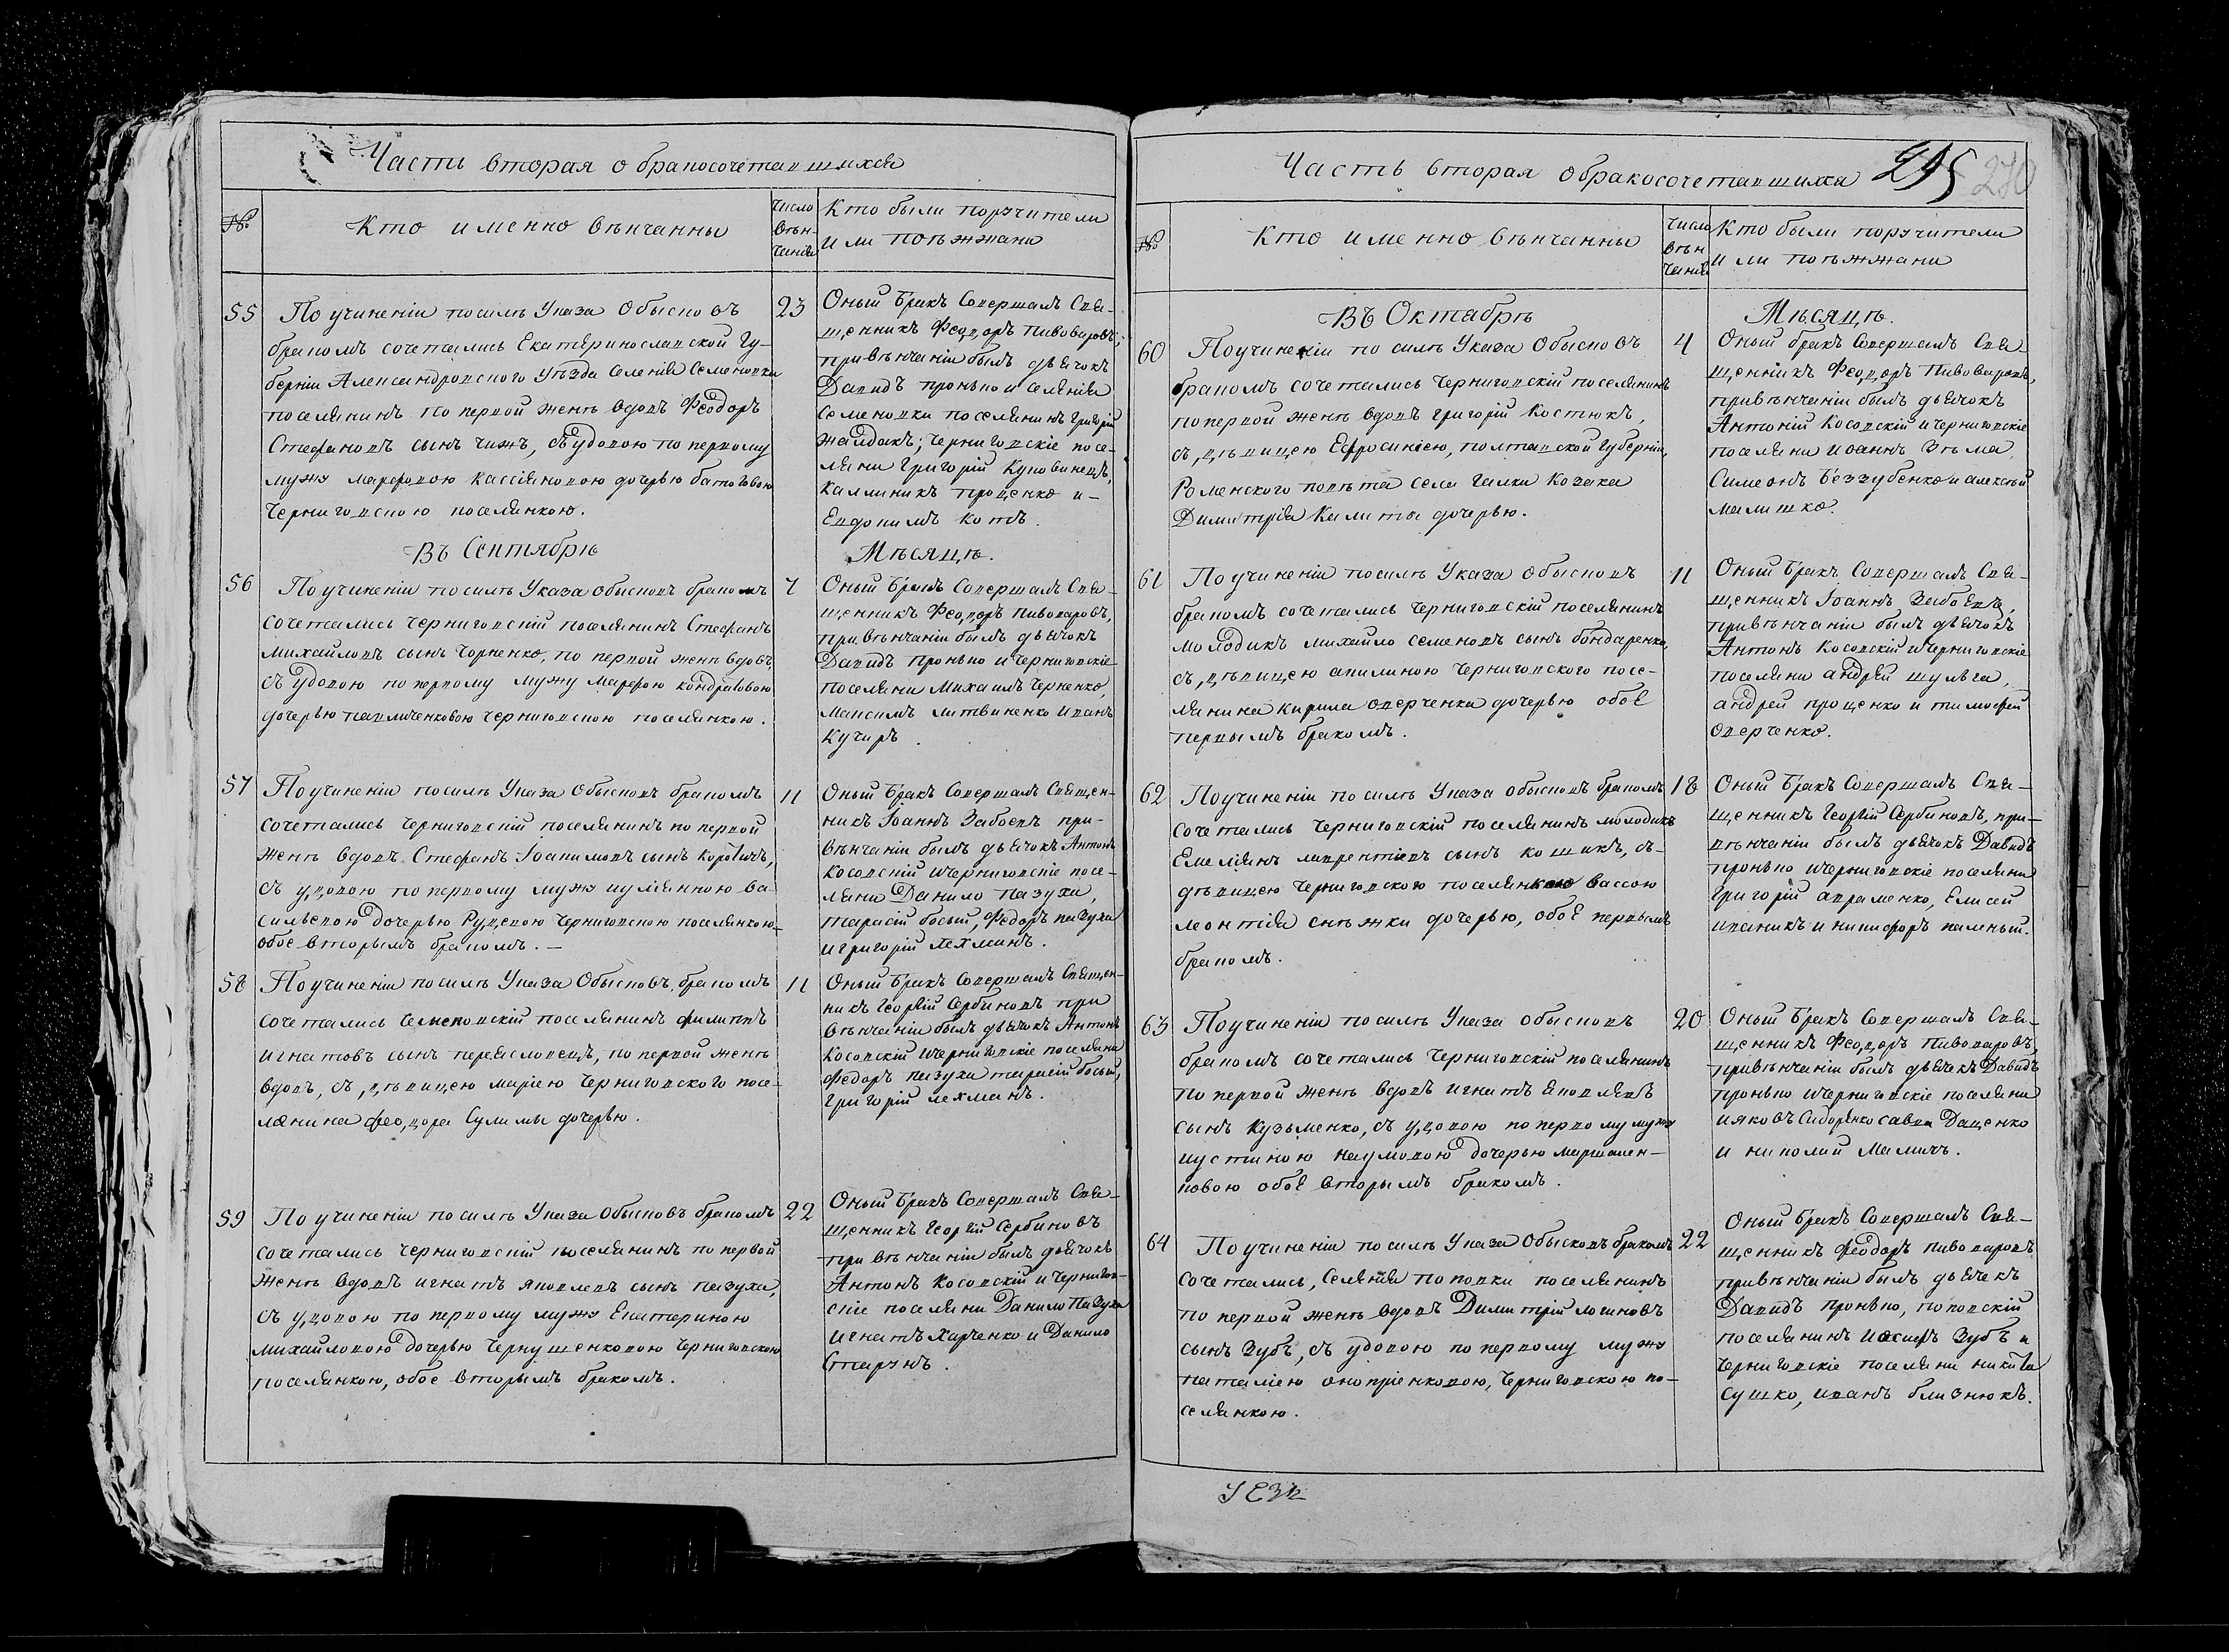 Часть вторая о бракосочетавшихся
№
Кто именно вѣнчанны
число вѣнчанія
Кто были поручители
или поѣжжани
55
По учиненіи посилѣ Указа Обысковъ
бракомъ сочетались Екатеринославской Гу-
берніи Александровского Уѣзда Селенія Семеновки
поселянинъ по первой женѣ вдовъ Феодоръ
Стефановъ сынъ Чижъ, съ удовою по первому
мужу Марфовою Кассіяновою дочерью Батоговою
Черниговскою поселянкою.
23
Оный Бракъ Совершалъ Свя-
щенникъ Феодоръ Пивоваровъ,
привѣнчаніи былъ дьячокъ
Давидъ Пронько и Селенія
Семеновки поселянинъ Григорій
Жалдакъ; Черниговскіе посе-
ляни Григорій Куповинецъ,
Каллиникъ Проценко и-
Евдокимъ Котъ.
Въ Сентябрѣ
Мѣсяцѣ.
56
По учиненіи посилѣ Указа обысковъ бракомъ
сочетались Черниговскій поселянинъ Стефанъ
Михайловъ сынъ Чорненко, по первой женѣ вдовъ,
съ удовою по первому мужу Марфою Кондратовою
дочерью Павличенковою Черниговскою поселянкою.
7
Оный Бракъ Совершалъ Свя-
щенникъ Феодоръ Пивоваровъ,
привѣнчаніи былъ дьячокъ
Давидъ Пронько и Черниговскіе
поселяни Михаилъ Черненко,
Максимъ Литвиненко Иванъ
Кучиръ.
57
По учиненіи посилѣ Указа Обысковъ бракомъ
сочетались Черниговскій поселянинъ по первой
женѣ вдовъ Стефанъ Іоакимовъ сынъ Коротичъ,
съ удовою по первому мужу Иулянною Ва-
сильевою дочерью Рудскою Черниговскою поселянкою
обое вторымъ бракомъ.-
11
Оный Бракъ Совершалъ Священ-
никъ Іоаннъ Забоевъ при-
вѣнчаніи былъ дьячокъ Антонъ
Косовскій и Черниговскіе посе-
ляни Данило Пазуха,
Тарасій Босый, Федоръ Пазуха
и Григорій Лехманъ.
58
По учиненіи посилѣ Указа Обысковъ, бракомъ
сочетались поселянинъ Филиппъ
Игнатовъ сынъ Переясловецъ, по первой женѣ
вдовъ, съ дѣвицею Маріею Черниговского посе-
лянина Феодора Сулимы дочерью.
11
Оный Бракъ Совершалъ Священ-
никъ Георгій Сербиновъ при
вѣнчаніи былъ дьячокъ Антонъ
Косовскій и Черниговскіе поселяни
Федоръ Пазуха Тарасій Босый,
Григорій Лехманъ.
59
По учиненіи посилѣ Указа Обысковъ бракомъ
сочетались Черниговскій поселянинъ по первой
женѣ вдовъ Игнатъ Яковлевъ сынъ Пазуха,
съ удовою по первому мужу Екатериною
Михайловою дочерью Чернушенковою Черниговскою
поселянкою, обое вторымъ бракомъ.
22
Оный Бракъ Совершалъ Свя-
щенникъ Георгій Сербиновъ
при вѣнчаніи былъ дьячокъ
Антонъ Косовскій и Чернигов-
скіе поселяни Данило Пазуха
Игнатъ Харченко и Данило
Старунъ.
Часть вторая о бракосочетавшихся
295
270
№
Кто именно вѣнчанны
число вѣнчанія
Кто были поручители
или поѣжжани
Въ Октябрѣ
Мѣсяцѣ.
60
По учиненіи по силѣ Указа Обысковъ
бракомъ сочетались Черниговскій поселянинъ
по первой женѣ вдовъ Григорій Костюкъ,
съ дѣвицею Евфросиніею, Полтавской Губерніи,
Роменского повѣта села Галки Козака
Димитрія Калиты дочерью.
4
Оный бракъ Совершалъ Свя-
щенникъ Феодоръ Пивоваровъ,
привѣнчаніи былъ дьячокъ
Антоній Косовскій и Черниговскіе
поселяни Иоаннъ Зѣма,
Симеонъ Беззубенко и Алексѣй
Малишко.
61
По учиненіи посилѣ Указа Обысковъ
бракомъ сочетались Черниговскій поселянинъ
молодикъ Михайло Семеновъ сынъ Бондаренко,
съ дѣвицею Акилиною Черниговского посе-
лянина Кирила Оверченка дочерью обое
первымъ бракомъ.
11
Оный Бракъ Совершалъ Свя-
щенникъ Іоаннъ Забоевъ,
привѣнчаніи былъ дьячокъ
Антонъ Косовскій и Черниговскіе
поселяни Андрей Шульга,
Андрей Проценко и Тимофей
Оверченко.
62
По учиненіи по силѣ Указа обысковъ бракомъ
сочетались Черниговскій поселянинъ молодикъ
Емеліянъ Лаврентіевъ сынъ Кошикъ, съ-
дѣвицею Черниговского Вассою
Леонтія Снѣжки дочерью, обое первымъ
бракомъ.
18
Оный Бракъ Совершалъ Свя-
щенникъ Георгій Сербиновъ, при-
вѣнчаніи былъ дьячокъ Давидъ
Пронько и Черниговскіе поселяни
Григорій Авраменко, Елисей
Иваникъ и Никифоръ Паленый.
63
По учиненіи посилѣ Указа обысковъ
бракомъ сочетались Черниговскій поселянинъ
по первой женѣ вдовъ Игнатъ Яковлевъ
сынъ Кузьменко, съ удовою по первому мужу
Иустиною Наумовою дочерью Маршален-
ковою обое вторымъ бракомъ.
20
Оный Бракъ Совершалъ Свя-
щенникъ Феодоръ Пивоваровъ,
привѣнчаніи былъ дьячекъ Давидъ
Пронько и Черниговскіе поселяни
Ияковъ Сидоренко Савва Даценко
и Николай Маличъ.
64
По учиненіи посилѣ Указа Обысковъ бракомъ
сочетались, Селенія Поповки поселянинъ
по первой женѣ вдовъ Димитрій Логиновъ
сынъ Зубъ, съ удовою по первому мужу
Наталіею Оноприенковою, Черниговскою по-
селянкою.
22
Оный бракъ Совершалъ Свя-
щенникъ Феодоръ Пивоваровъ
привѣнчаніи былъ дьячекъ
Давидъ Пронько, Поповскій
поселянинъ Зубъ и
Черниговскіе поселяни Никита
Сушко, Иванъ Близнюкъ.